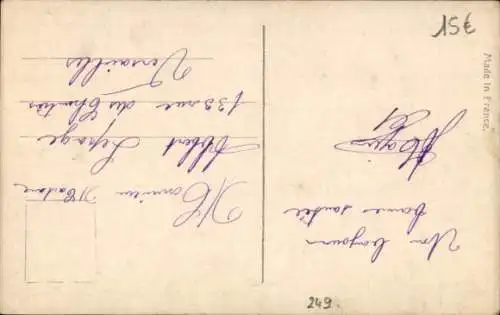 Monsieur Madame
Albert Lepage
133 rue des Chantiers
Versailles
Un bonjour
bonne santée
15€
Made in France.
249.